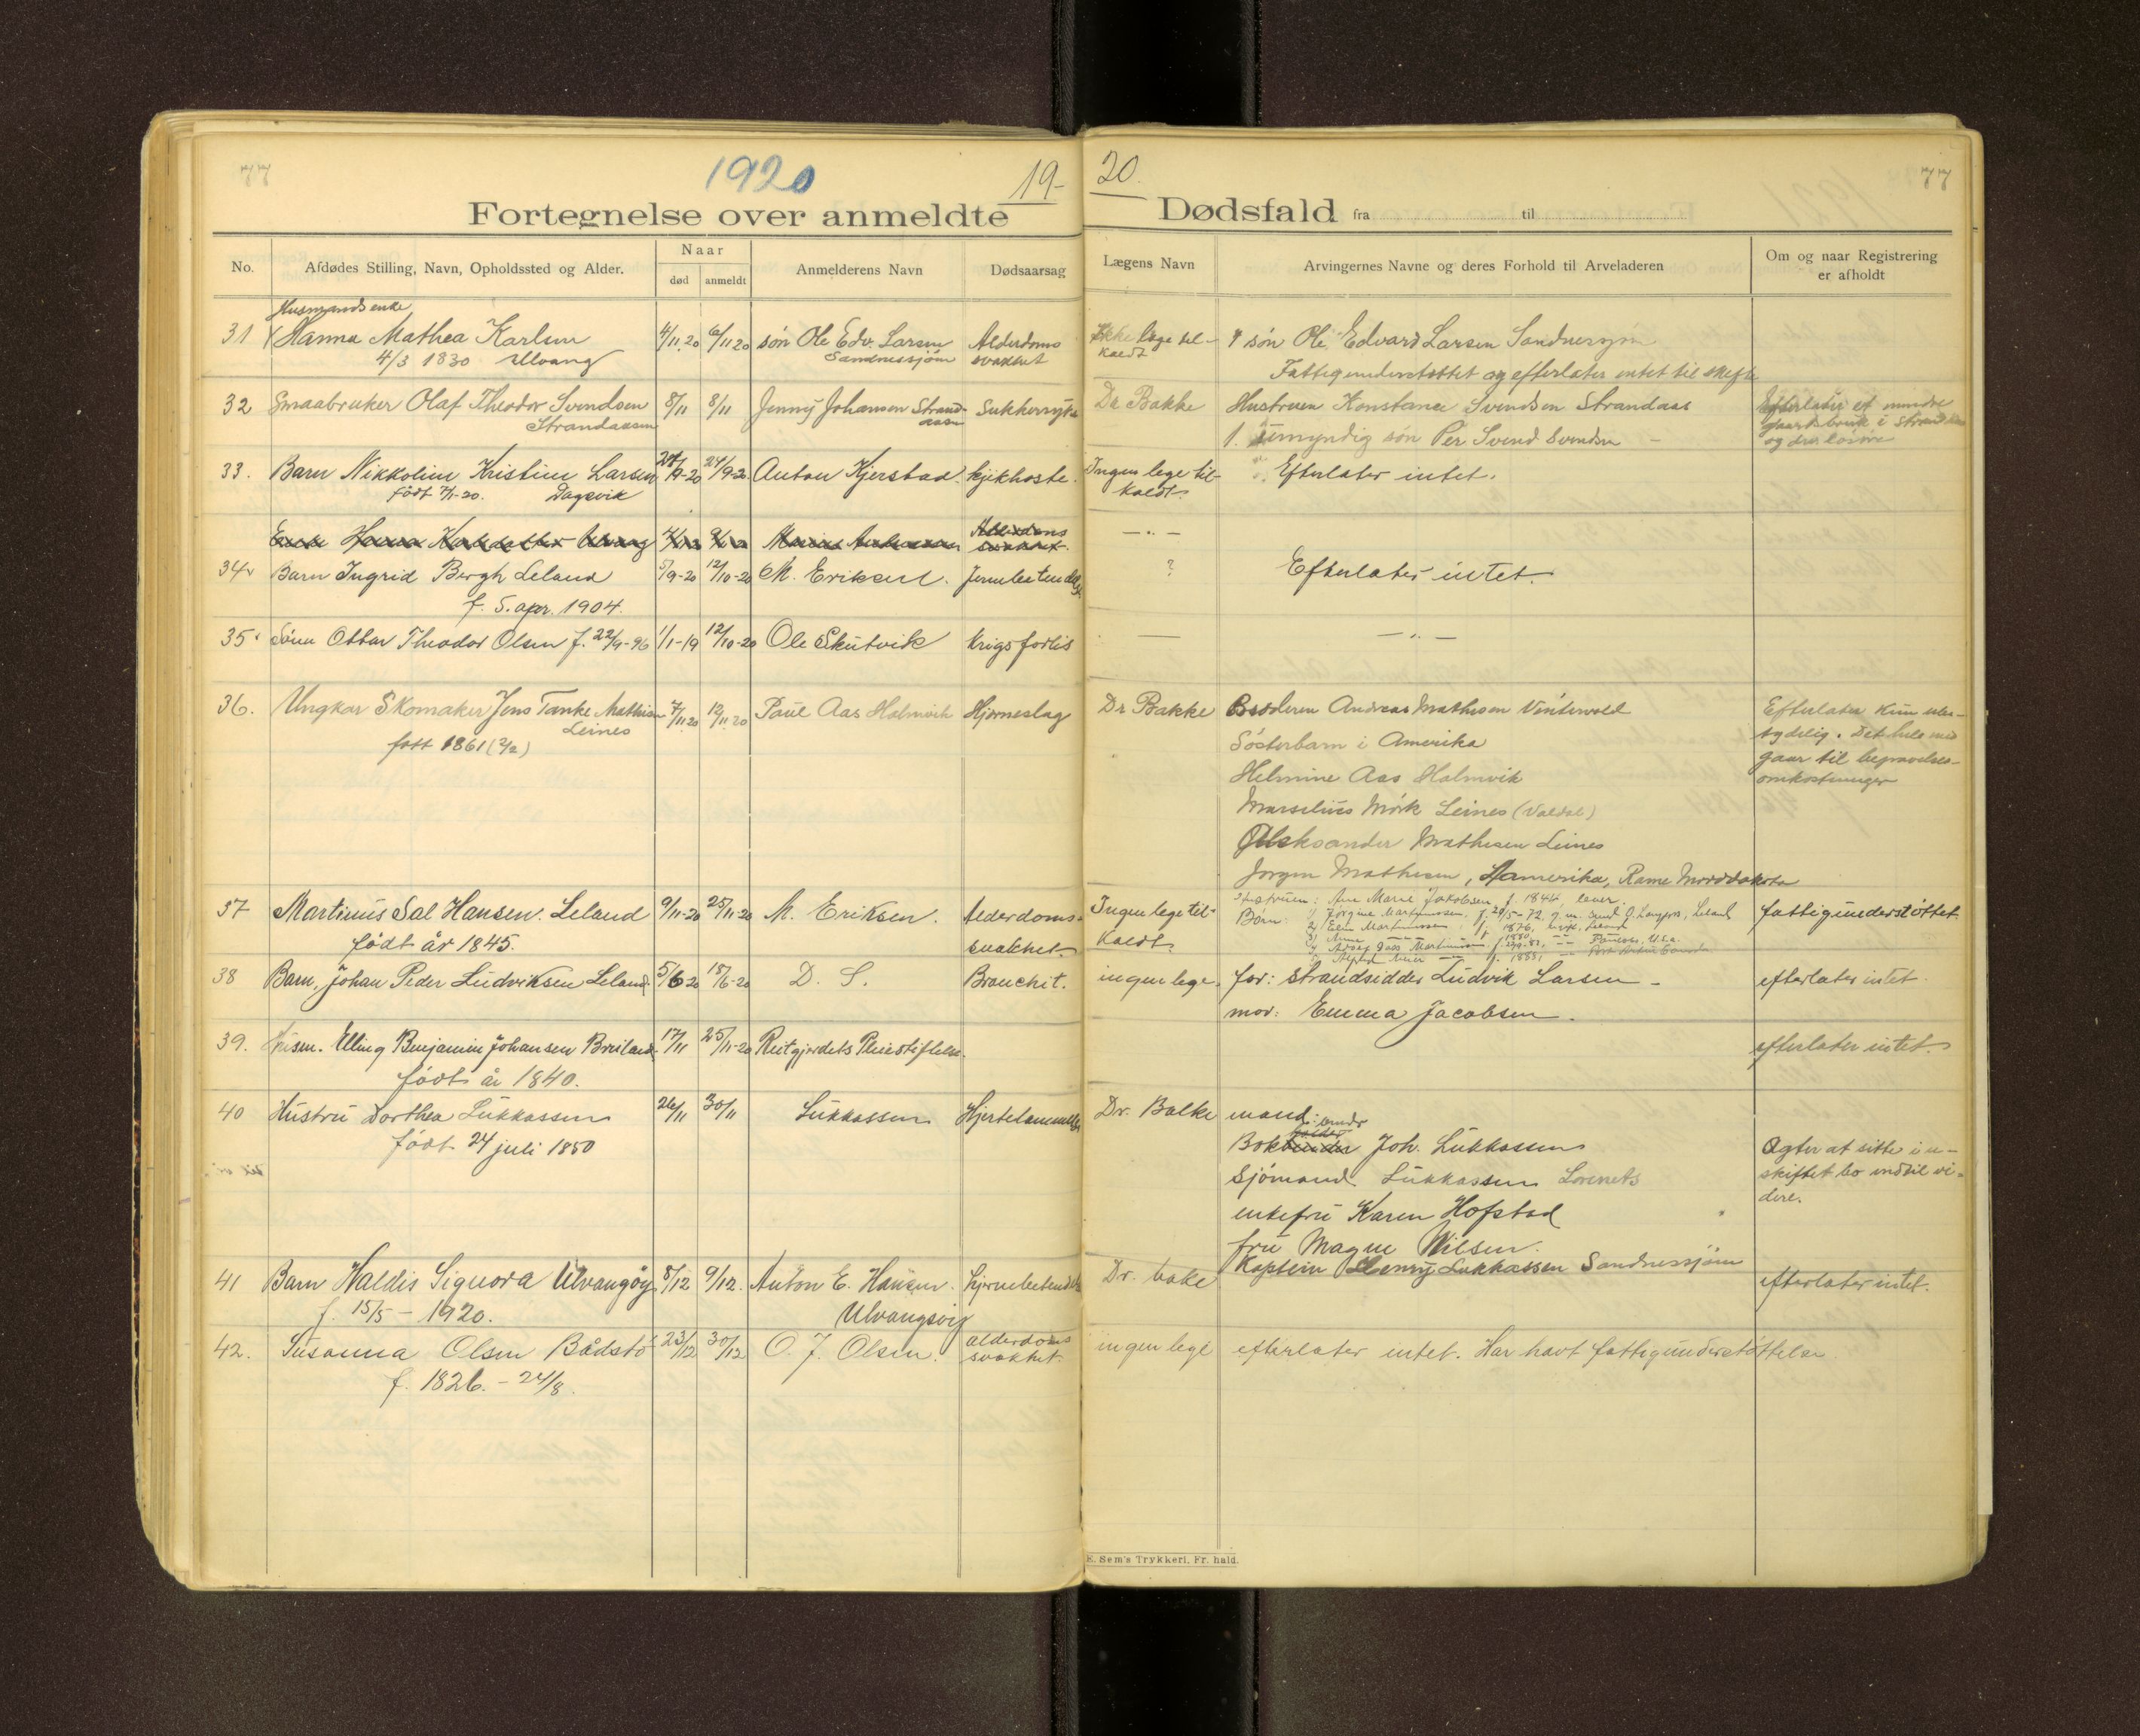 77
1920
19-
20.
77
Fortegnelse over anmeldte
Dødsfald fra til
No.
Afdødes Stilling, Navn, Opholdssted og Alder.
Naar
død
anmeldt
Anmelderens Navn
Dødsaarsag
Lægens Navn
Arvingernes Navne og deres Forhold til Arveladeren
Om og naar Registrering
er afholdt
Husmandsenke
31 Hanna Mathea Karlsen 4/11 20 6/11 20 søn Ole Edv. Larsen Alderdoms Ikke læge til- søn Ole Edvard Larsen Sandnessjøn
4/3 1830 Ulvang Sandnessjøen svakhet kaldt
Fattigunderstøttet og efterlater intet til skifte
32 Smaabruker Olaf Theodor Svendsen 8/11 8/11 Jenny Johansen Strand- Sukkersyke Dr Bakke Hustruen Konstance Svendsen Strandaas Efterlater et mindre
Strandaasen aasen 1. umyndig søn Per Svend Svendsen gaardsbruk i Strandaas
og drev løsøre
33. Barn Nikkoline Kristine Larsen 9-20 24/9-20 Anton Kjerstad. kjikhoste. Ingen lege til- Efterlater intet.
født 7/1-20. Dagsvik kaldt.
Enke Hanna Ulvang Alderdoms
svakhet. — „ —
34 Barn Ingrid Bergh Leland 5/9-20 12/10-20 M. Eriksen. ? Efterlater intet.
f. 5. apr. 1904.
35 Sønn Ottar Theodor Olsen f. 22/9-96 1/1-19 12/10-20 Ole Skutvik Krigsforlis — — „ —
36. Ungkar Skomaker Jens Tanke Mathisen 7/11 20 12/11 20 Paul Aas Holmvik Hjerneslag Dr Bakke Broderen Andreas Mathesen Vintervold Efterlater kun ube-
Leines Søsterbarn i Amerika tydelig. Det hele med
født 1861 (2/2) Helmine Aas Holmvik gaar til begravelses-
omkostninger
Marselius Mørk Leines (Valdal)
Aleksander Mathesen Leines
Jørgen Mathesen, Hamerika, Rame Norddakota
37 Martinus Sal Hansen. Leland 9/11-20 25/11-20 M. Eriksen. Alderdoms- Ingen lege til- Hustruen: Ane Marie Jakobsen, f. 1844, lever. fattigunderstøttet
født år 1845. svakhet. kaldt. Børn: 1) Jørgine Martinussen, f. 29/5-72, g.m.
2) Elen Martinussen, f. 1876, Leland
3) Anna — — — f. 1880
4) Adolf Martinussen, U.S.A.
5) Alfred f. 1885,
38 Barn, Johan Peder Ludviksen Leland 5/6 20 18/6-20 D. S. Bronchit. ingen lege. far: strandsidder Ludvik Larsen - efterlater intet.
mor: Emma Jacobsen.
39. Elling Benjamin Johansen Breiland 17/11 25/11-20 Reitgjerdets Pleiestiftelse. efterlater intet.
født år 1840.
40 Hustru Dorthea Lukkassen 26/11 30/11 Lukkassen Hjertelammelse Dr. Balke mand:
født 24 juli 1850 Bokbinder Joh. Lukkassen Agter at sitte i u-
Sjømand Lukkassen skiftet bo indtil vi-
dere.
enkefru Karen Hofstad
fru Magne Nilsen.
Kaptein Henry Lukkassen Sandnessjøen
41 Barn Haldis Signora Ulvangøy 8/12 9/12. Anton E. Hansen. Hjernebetendelse Dr. bake efterlater intet.
f. 15/5 - 1920. Ulvangsvig
42. Susanna Olsen Bådstø 23/12 30/12 O. J. Olsen. alderdoms ingen lege efterlater intet. Har havt fattigunderstøttelse
f. 1826. - 24/8. svakhet.
E. Sem's Trykkeri, Fr. hald.